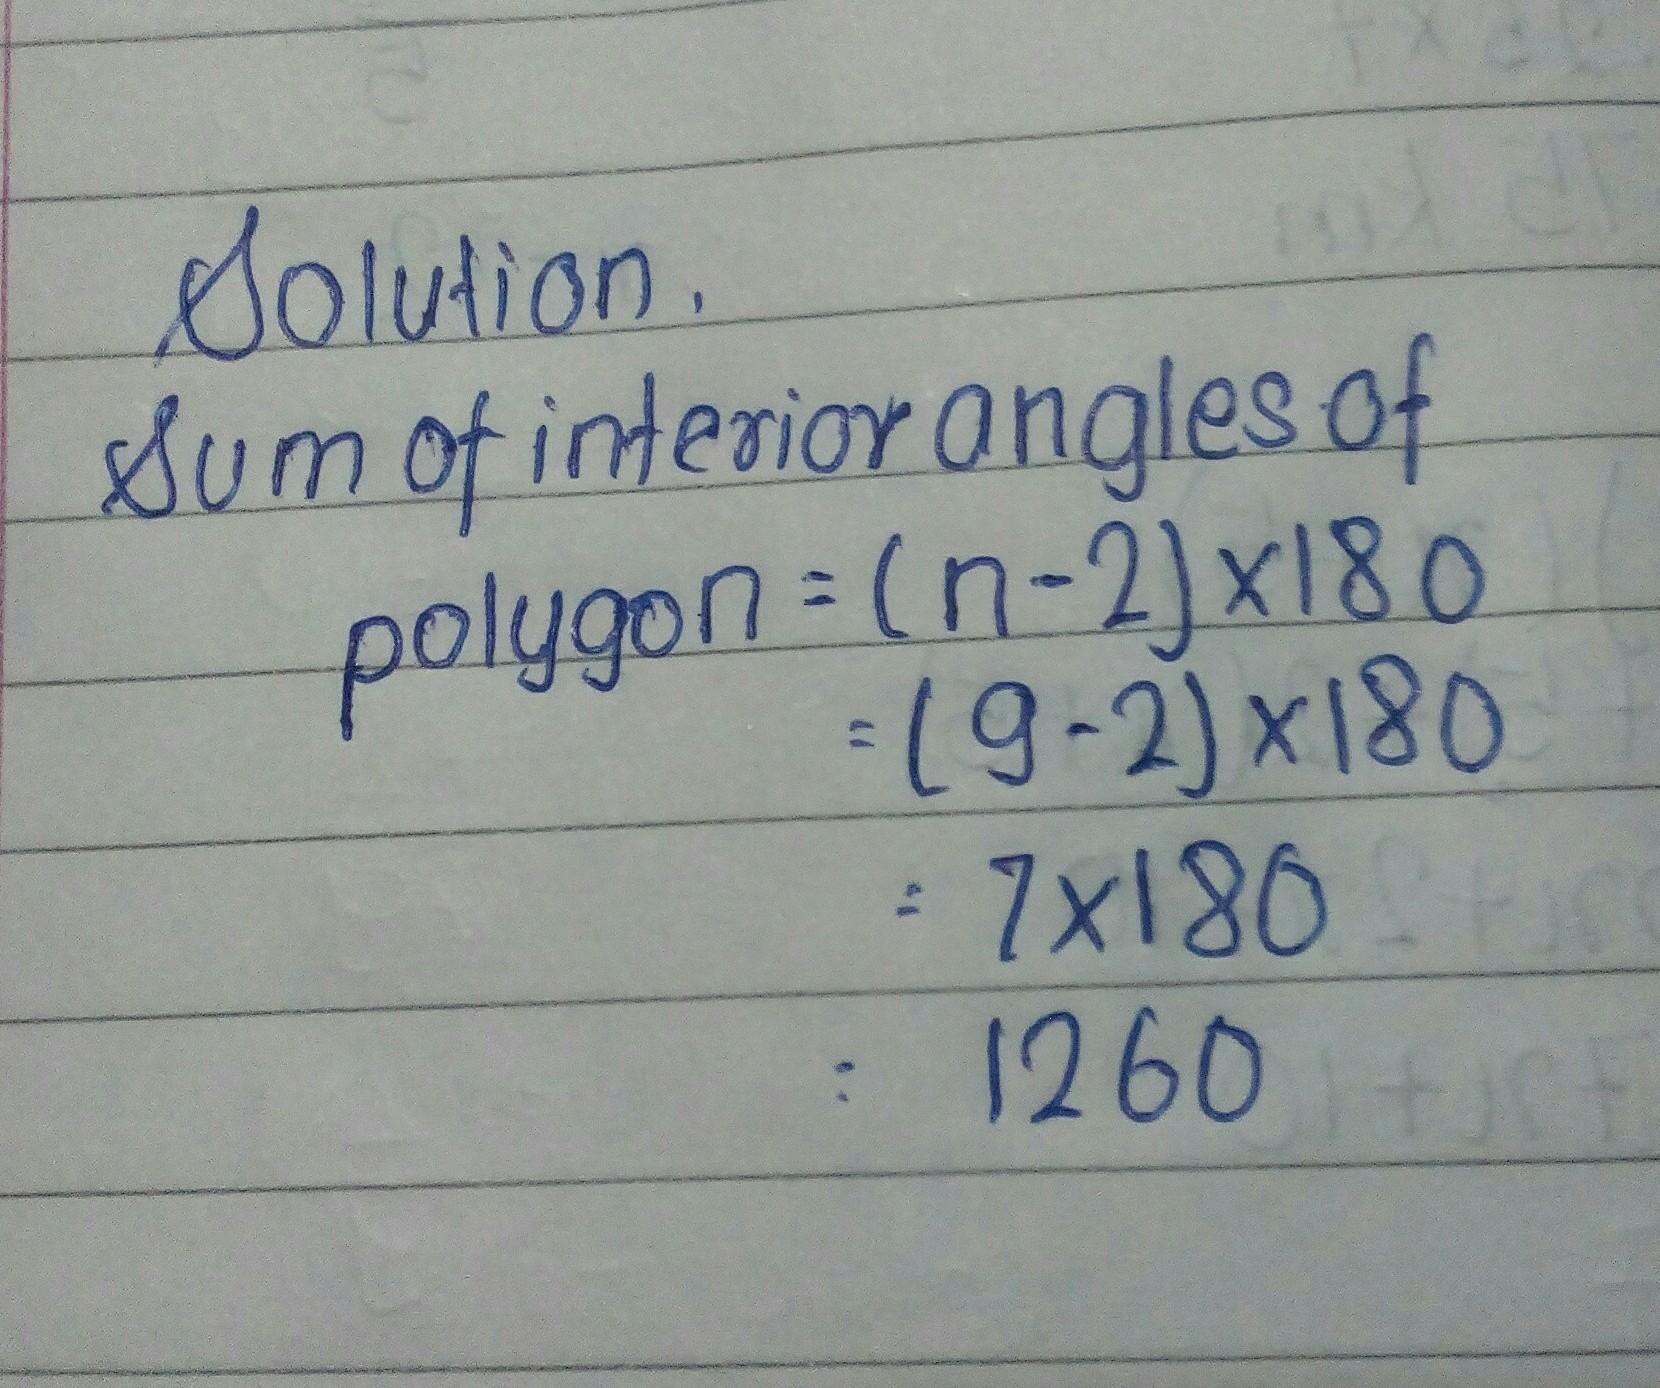 Solution.
Sum of interior angles of
polygon = (n-2)×180
= (9-2)×180
= 7×180
: 1260